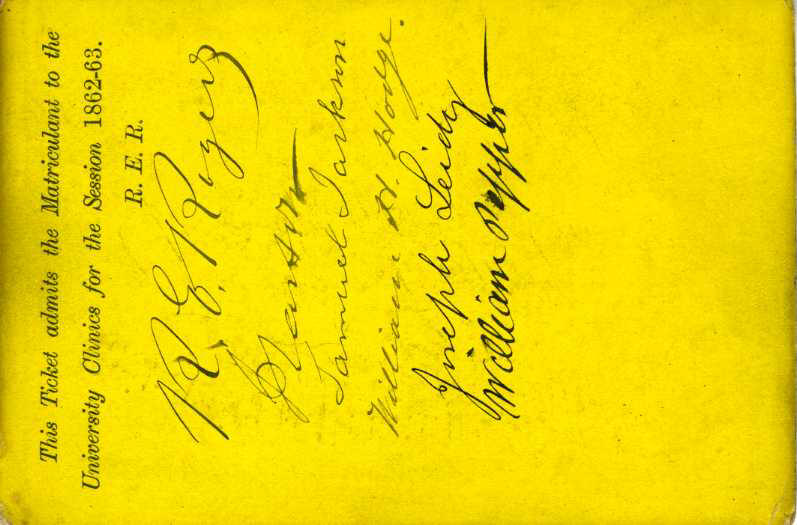 This Ticket admits the Matriculant to the
University Clinics for the Session 1862-63.
R. E. R.
R. E. Rogers
Samuel Jackson
William H. Hodge.
Joseph Leidy
William Pepper